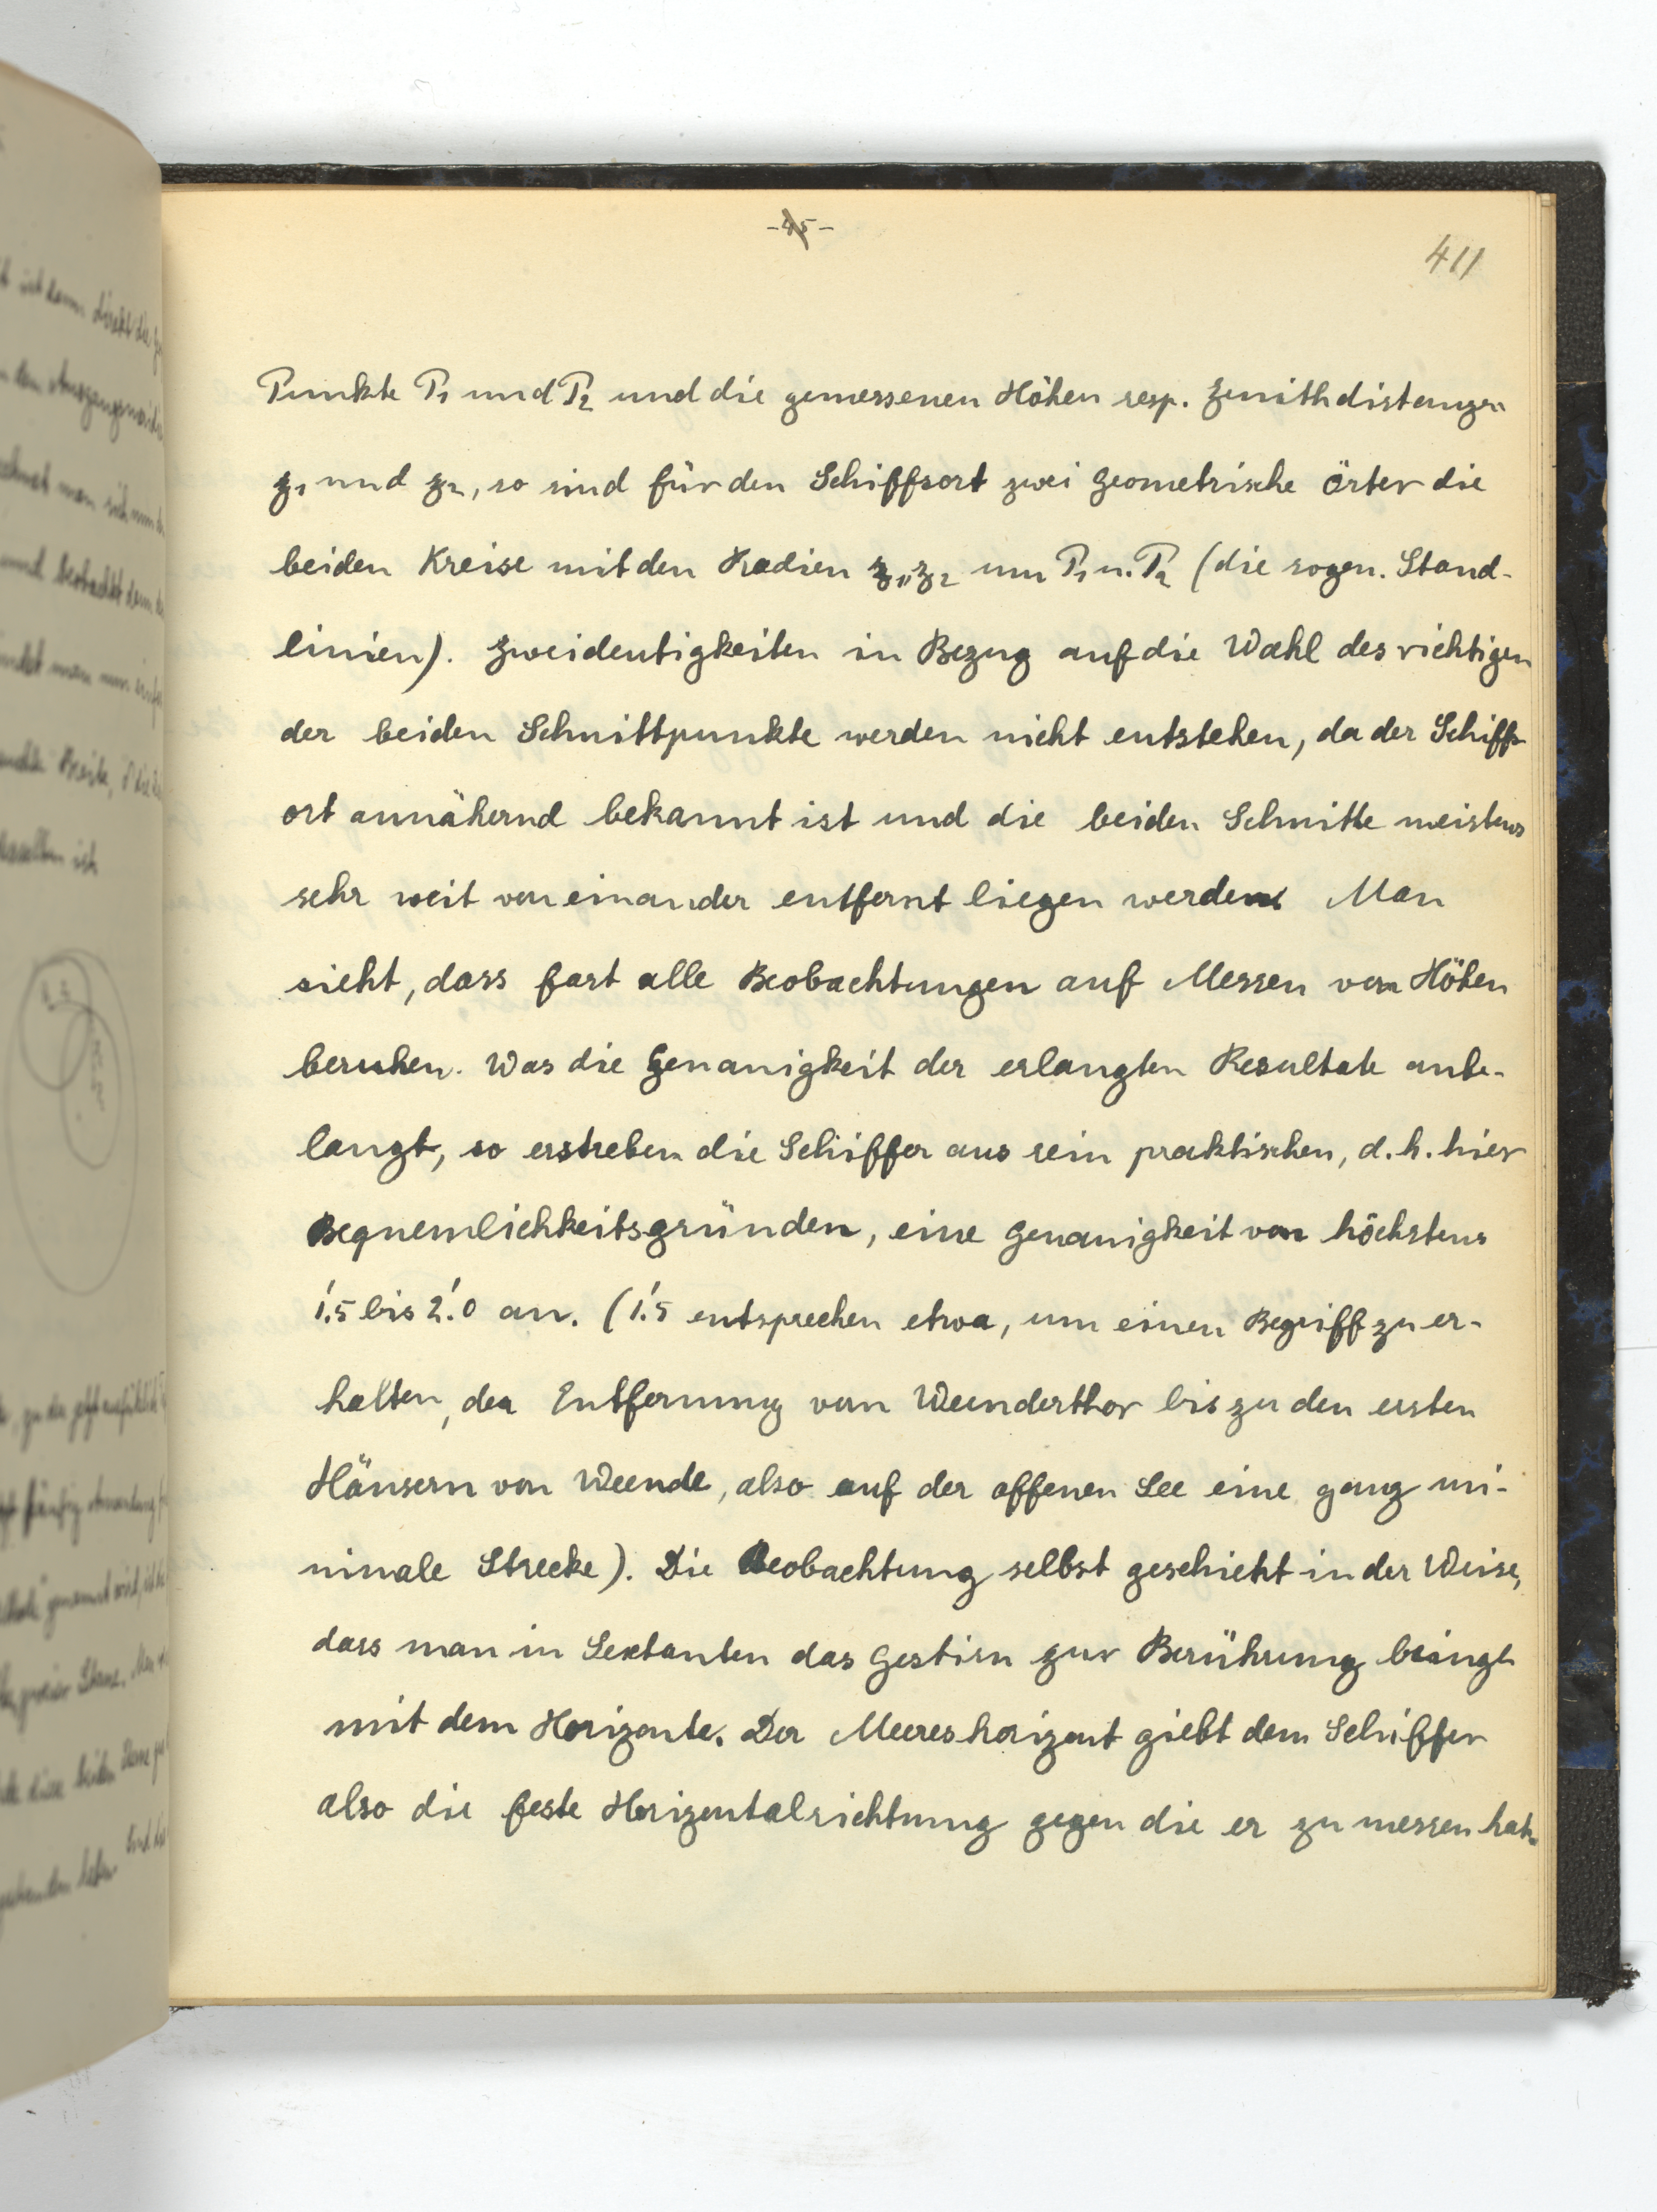 -45-
411
Punkte P₁ und P₂ und die gemessenen Höhen resp. Zenithdistanzen
z₁ und z₂, so sind für den Schiffsort zwei geometrische Örter die
beiden Kreise mit den Radien z₁, z₂ um P₁ u. P₂ (die sogen. Stand-
linien). Zweideutigkeiten in Bezug auf die Wahl des richtigen
der beiden Schnittpunkte werden nicht entstehen, da der Schiffs-
ort annähernd bekannt ist und die beiden Schnitte meistens
sehr weit von einander entfernt liegen werden. Man
sieht, dass fast alle Beobachtungen auf Messen von Höhen
beruhen. Was die Genauigkeit der erlangten Resultate anbe-
langt, so erstreben die Schiffer aus rein praktischen, d. h. hier
Bequemlichkeitsgründen, eine Genauigkeit von höchstens
1.'5 bis 2.'0 an. (1.'5 entsprechen etwa, um einen Begriff zu er-
halten, der Entfernung vom Weenderthor bis zu den ersten
Häusern von Weende, also auf der offenen See eine ganz mi-
nimale Strecke). Die Beobachtung selbst geschieht in der Weise,
dass man in Sextanten das Gestirn zur Berührung bringt
mit dem Horizonte. Der Meereshorizont giebt dem Schiffer
also die feste Horizontalrichtung gegen die er zu messen hat.